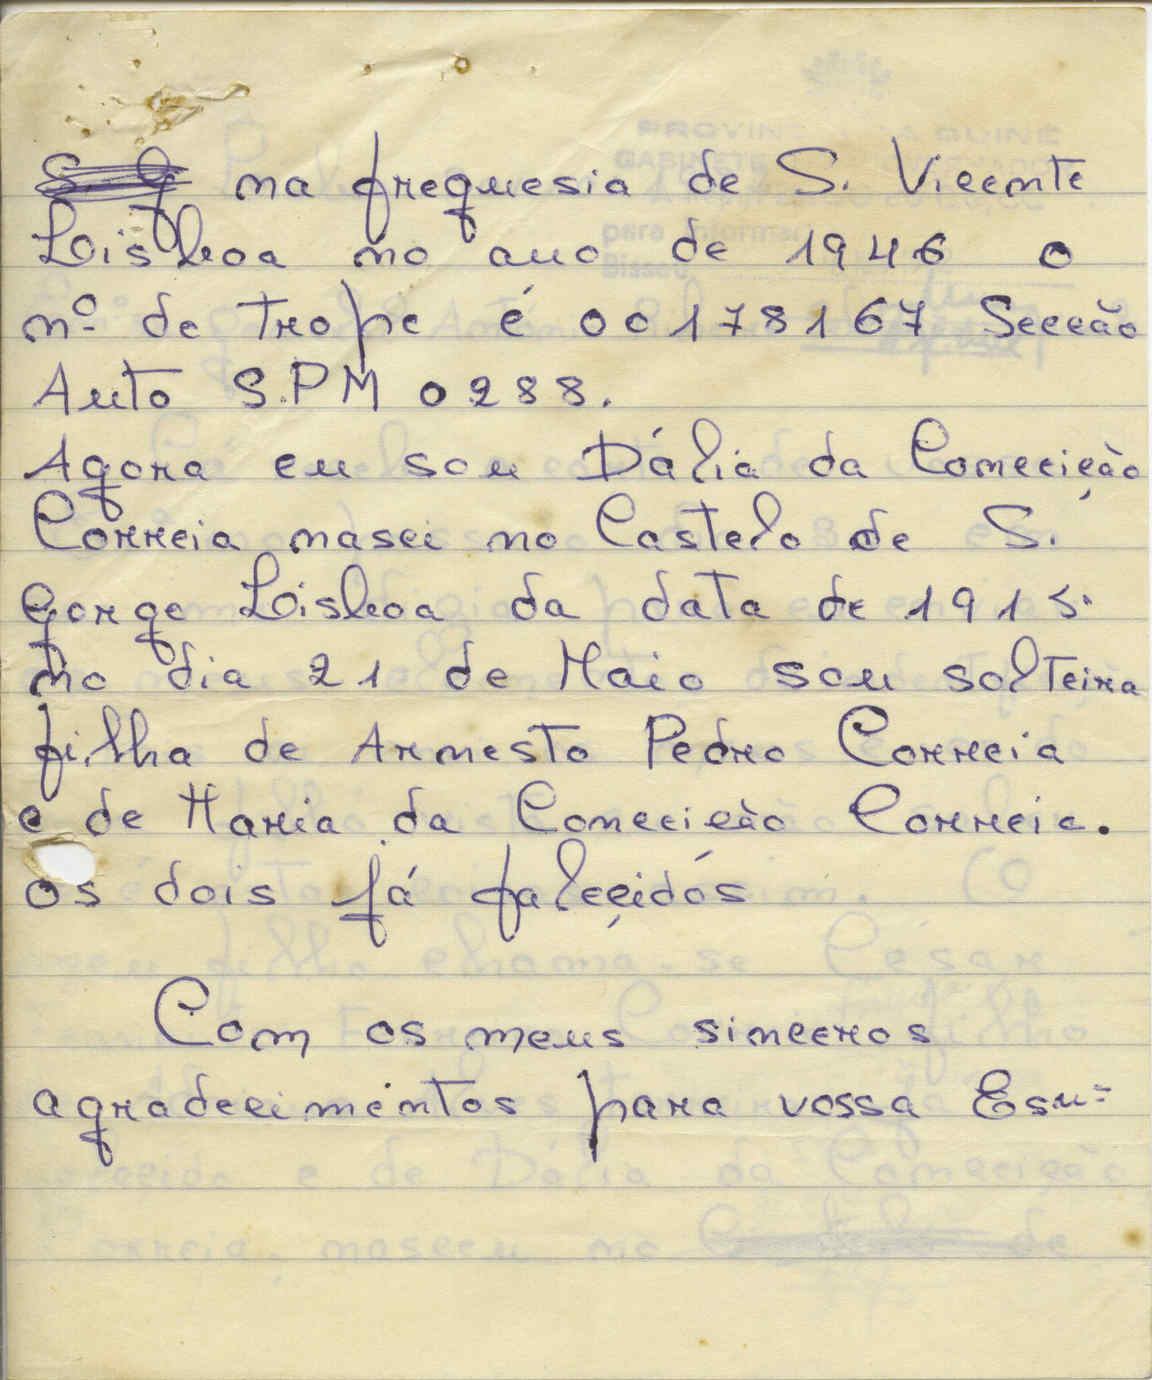 na freguesia de S. Vicente
Lisboa no ano de 1946 o
nº de trope é 00178167 Secção
Auto S.P.M 0288.
Agora eu sou Dália da Comecição
Correia nasci no Castelo de S.
gorge Lisboa da data de 1915.
no dia 21 de Maio sou solteira
filha de Arnesto Pedro Correia
e de Maria da Conecição Correia.
os dois já faleçidos
Com os meus sinceros
agradecimentos para vossa